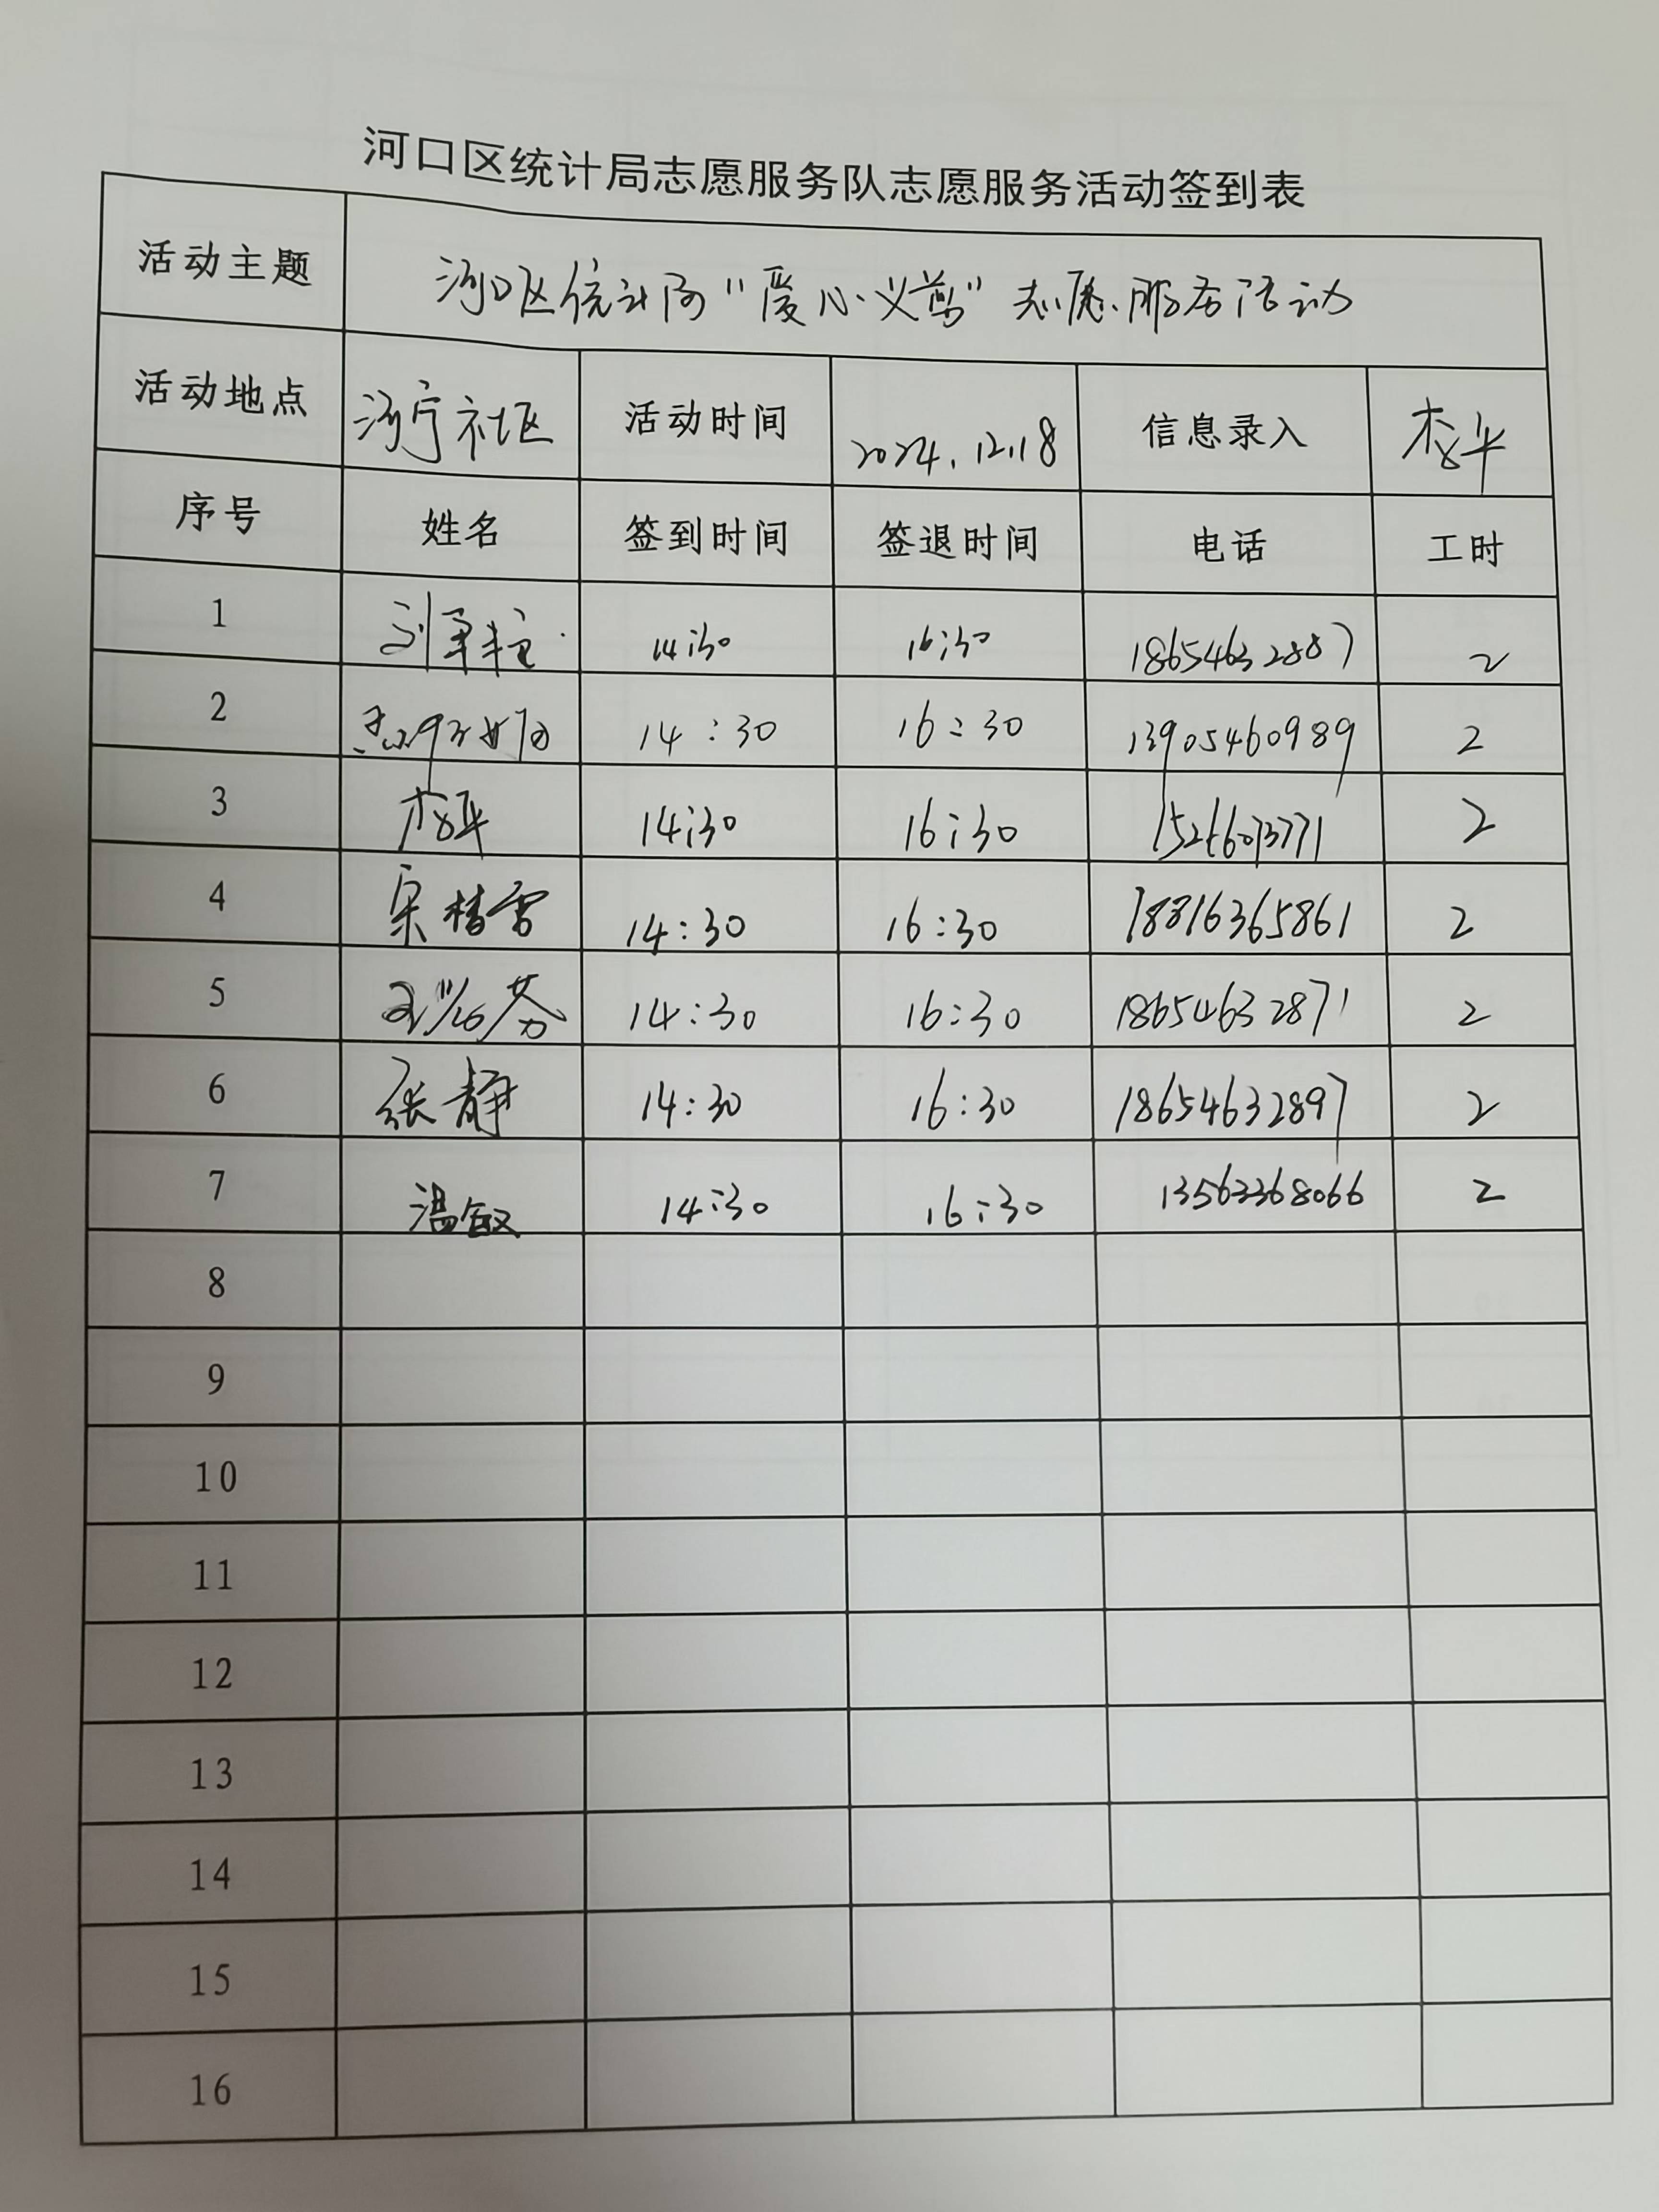 河口区统计局志愿服务队志愿服务活动签到表
活动主题 河口区统计局"爱心义剪"志愿服务活动
活动地点 河宁社区 活动时间 2024.12.18 信息录入
序号 姓名 签到时间 签退时间 电话 工时
1 14:30 16:30 18654632887 2
2 14:30 16:30 13905460989 2
3 14:30 16:30 15266073771 2
4 14:30 16:30 18816365861 2
5 14:30 16:30 18654632871 2
6 张静 14:30 16:30 18654632897 2
7 温敏 14:30 16:30 13562368066 2
8
9
10
11
12
13
14
15
16